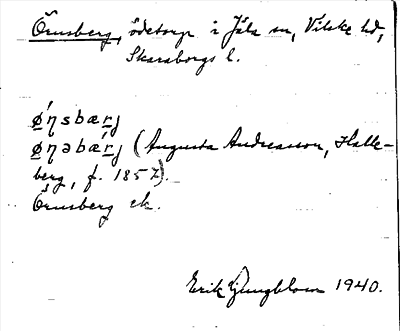 Örnsberg, ödetorp i Jäla sn, Vilske hd,
Skaraborgs l.
ǿɳsbærj
ø̱ɳəbǽrj (Augusta Andreasson, Halle-
berg, f. 1857).
Örnsberg ek.
Erik Ljungblom 1940.